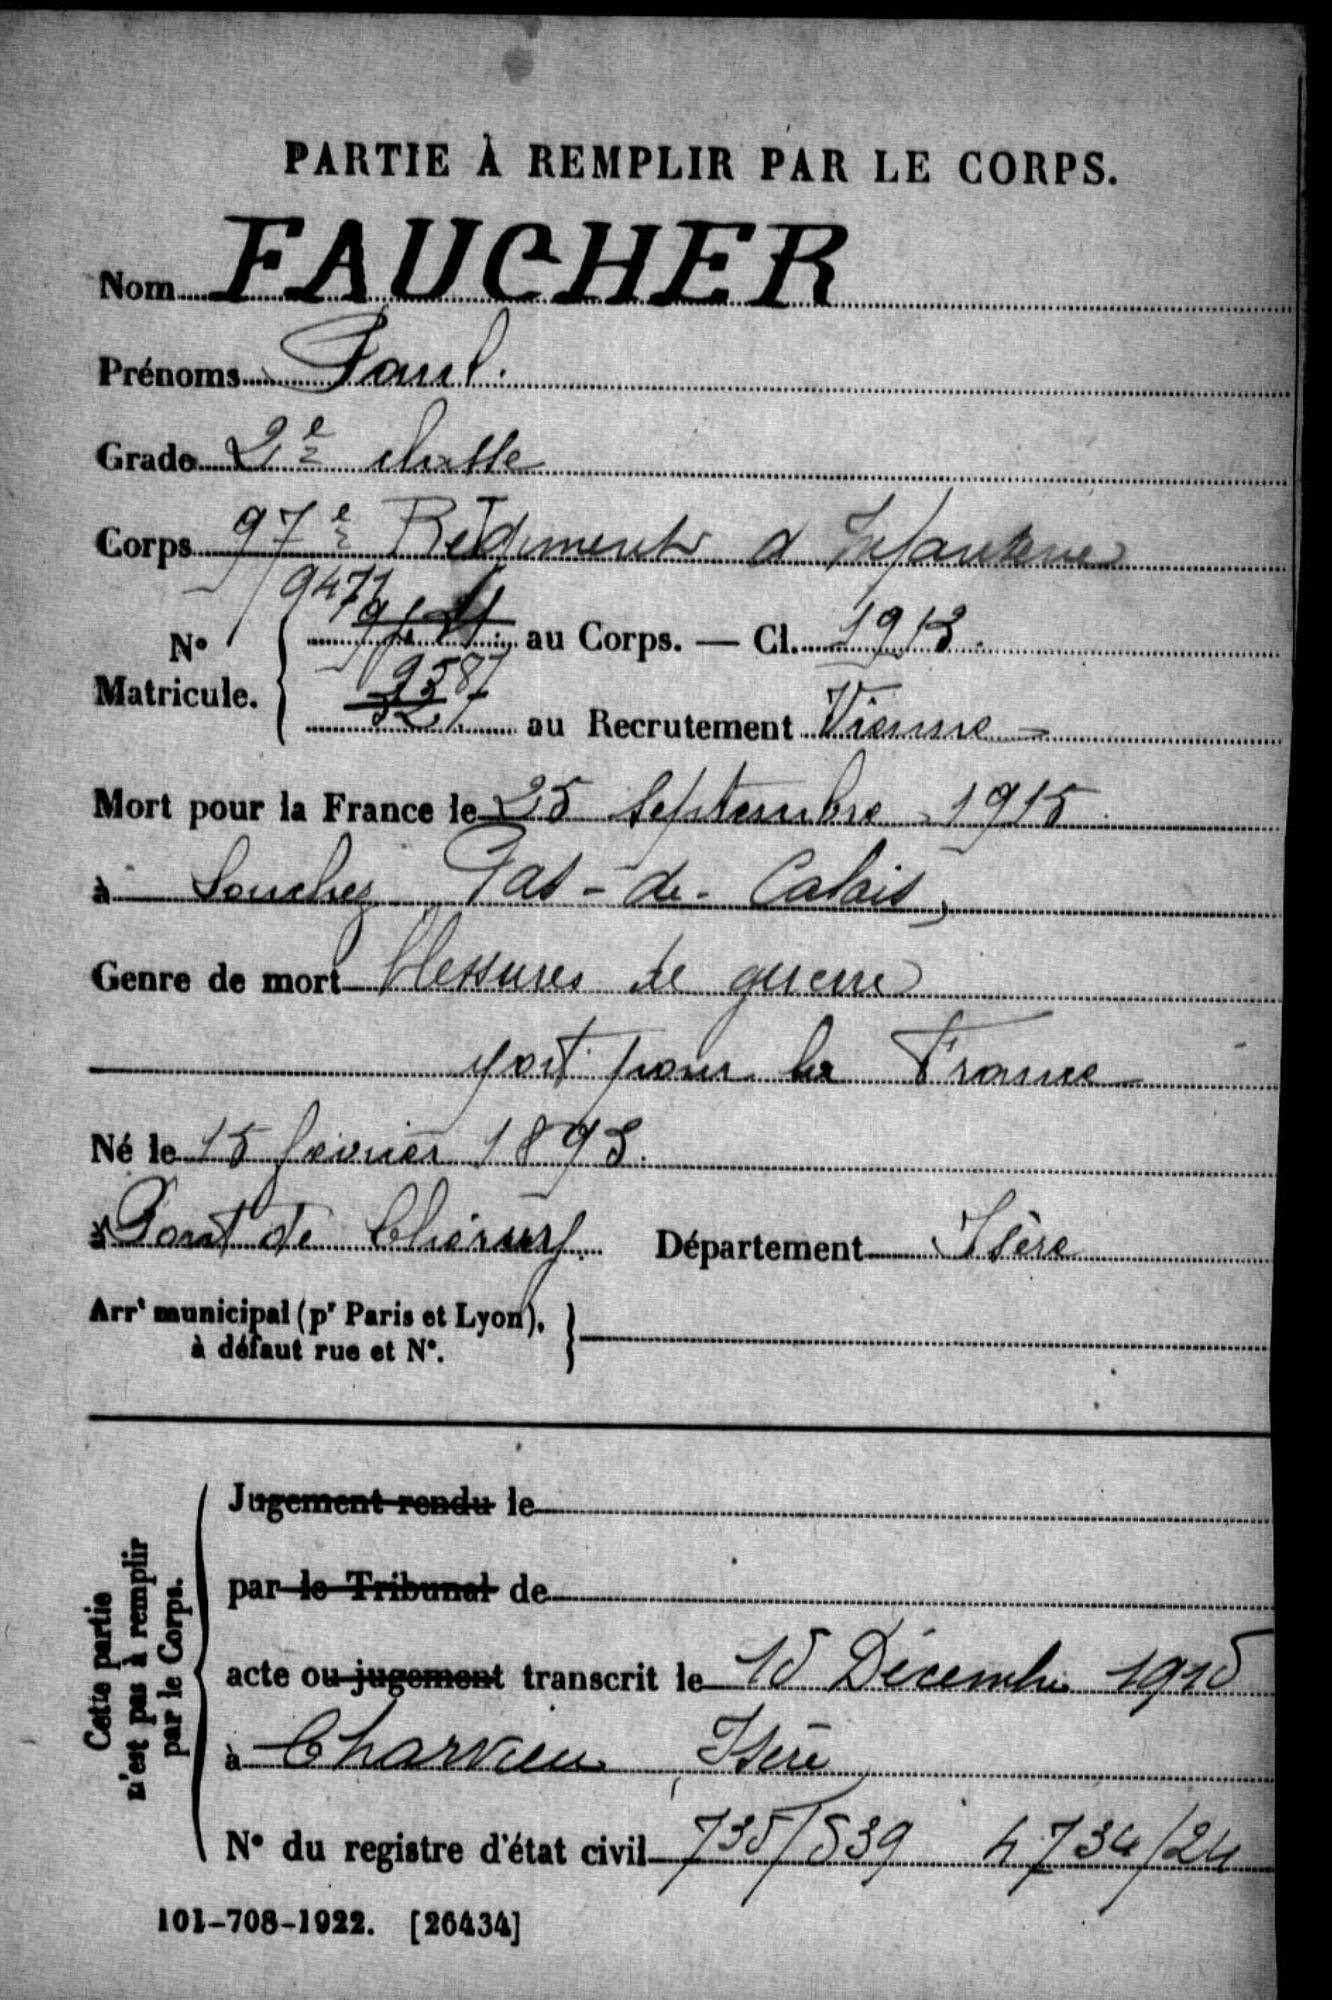 PARTIE À REMPLIR PAR LE CORPS.
Nom FAUCHER
Prénoms Paul.
Grade 2e classe
Corps 97e Régiment d'Infanterie
9471
N° Matricule. au Corps. — Cl. 1913.
587
au Recrutement Vienne
Mort pour la France le 25 Septembre 1915
à Souchez Pas-de-Calais,
Genre de mort blessures de guerre
Mort pour la France
Né le 15 février 1893.
à Pont de Chéruy. Département Isère
Arrt municipal (pr Paris et Lyon),
à défaut rue et N°.
Cette partie
n'est pas à remplir
par le Corps.
Jugement rendu le
par le Tribunal de
acte ou jugement transcrit le 15 Décembre 1915
à Charvieu, Isère
N° du registre d'état civil 735/539 4734/24
101-708-1922. [26434]